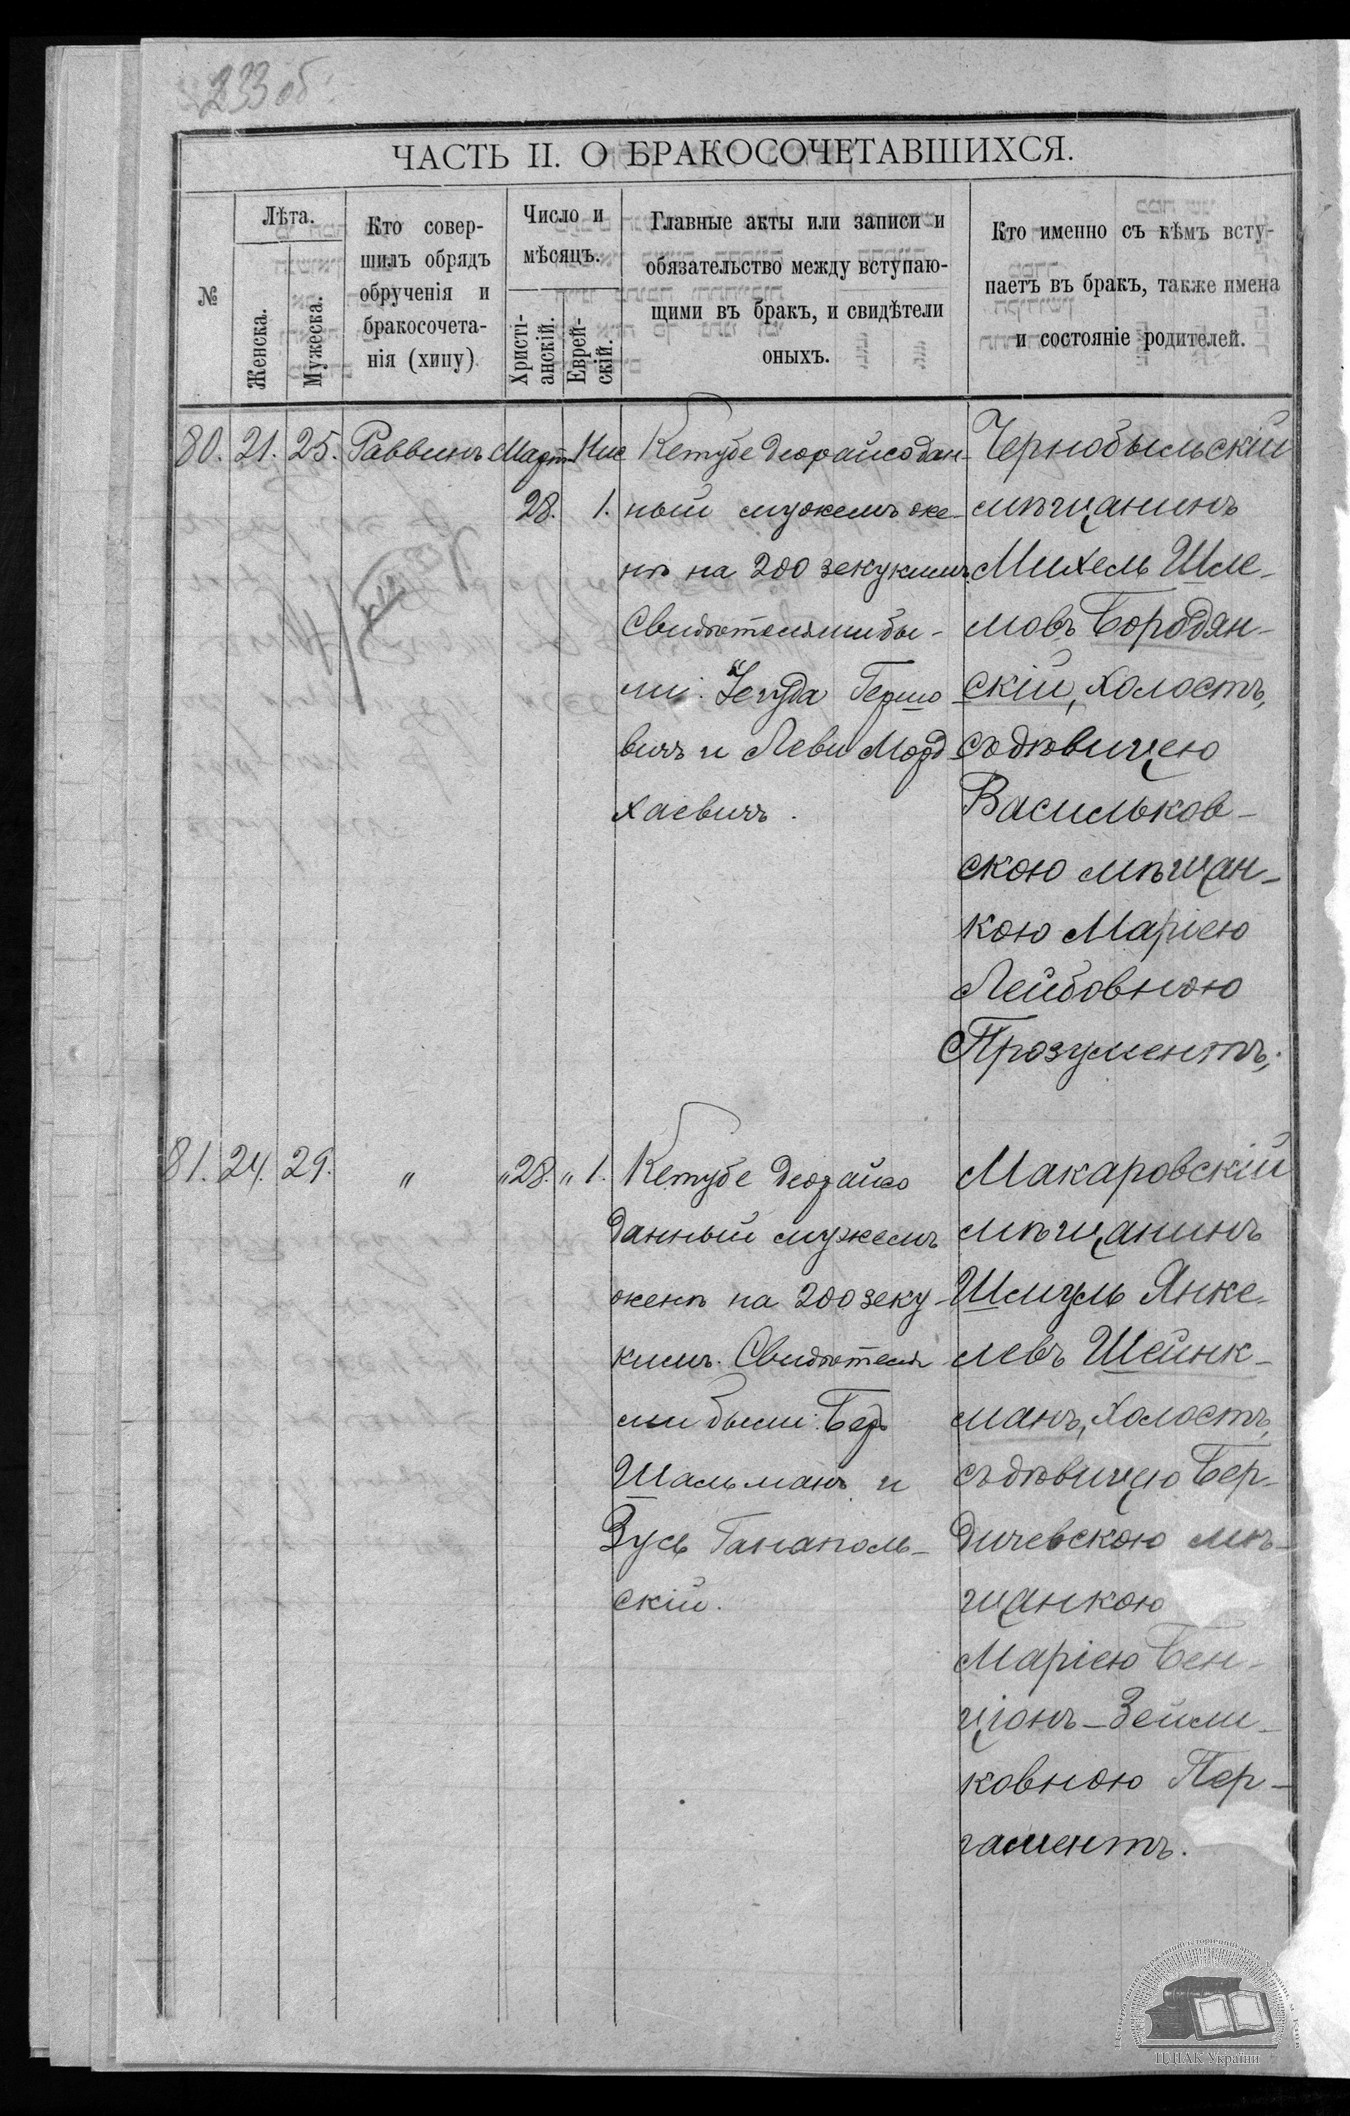 233 об
ЧАСТЬ II. О БРАКОСОЧЕТАВШИХСЯ.
№
Лѣта.
Женска.
Мужеска.
Кто совер-
шилъ обрядъ
обрученія и
бракосочета-
нія (хипу)
Число и
мѣсяцъ.
Христі-
анскій.
Еврей-
скій.
Главные акты или записи и
обязательство между вступаю-
щими въ бракъ, и свидѣтели
оныхъ.
Кто именно съ кѣмъ всту-
паетъ въ бракъ, также имена
и состояніе родителей.
80. 21. 25. Раввинъ Март Нис
28. 1.
Кетубе деорайсо дан-
ный мужемъ же-
нѣ на 200 зекукимъ.
Свидѣтелями бы-
ли: Іегуда Гершо
вичъ и Леви Морд
хаевичъ.
Чернобыльскій
мѣщанинъ
Михель Шле-
мовъ Бородян-
скій, холостъ,
съ дѣвицею
Васильков-
скою мѣщан-
кою Маріею
Лейбовною
Прозументъ.
81. 24. 29. " " 28. " 1.
Кетубе деорайсо
данный мужемъ
женѣ на 200 зеку-
кимъ. Свидѣтеля
ми были: Бер
Шальманъ и
Зусь Ганаполь-
скій.
Макаровскій
мѣщанинъ
Шмуль Янке-
левъ Шейнк-
манъ, холостъ,
съ дѣвицею Бер-
дичевскою мѣ-
щанкою
Маріею Бен-
ціонъ-Зейли-
ковною Пер-
гаментъ.
ЦДІАК України